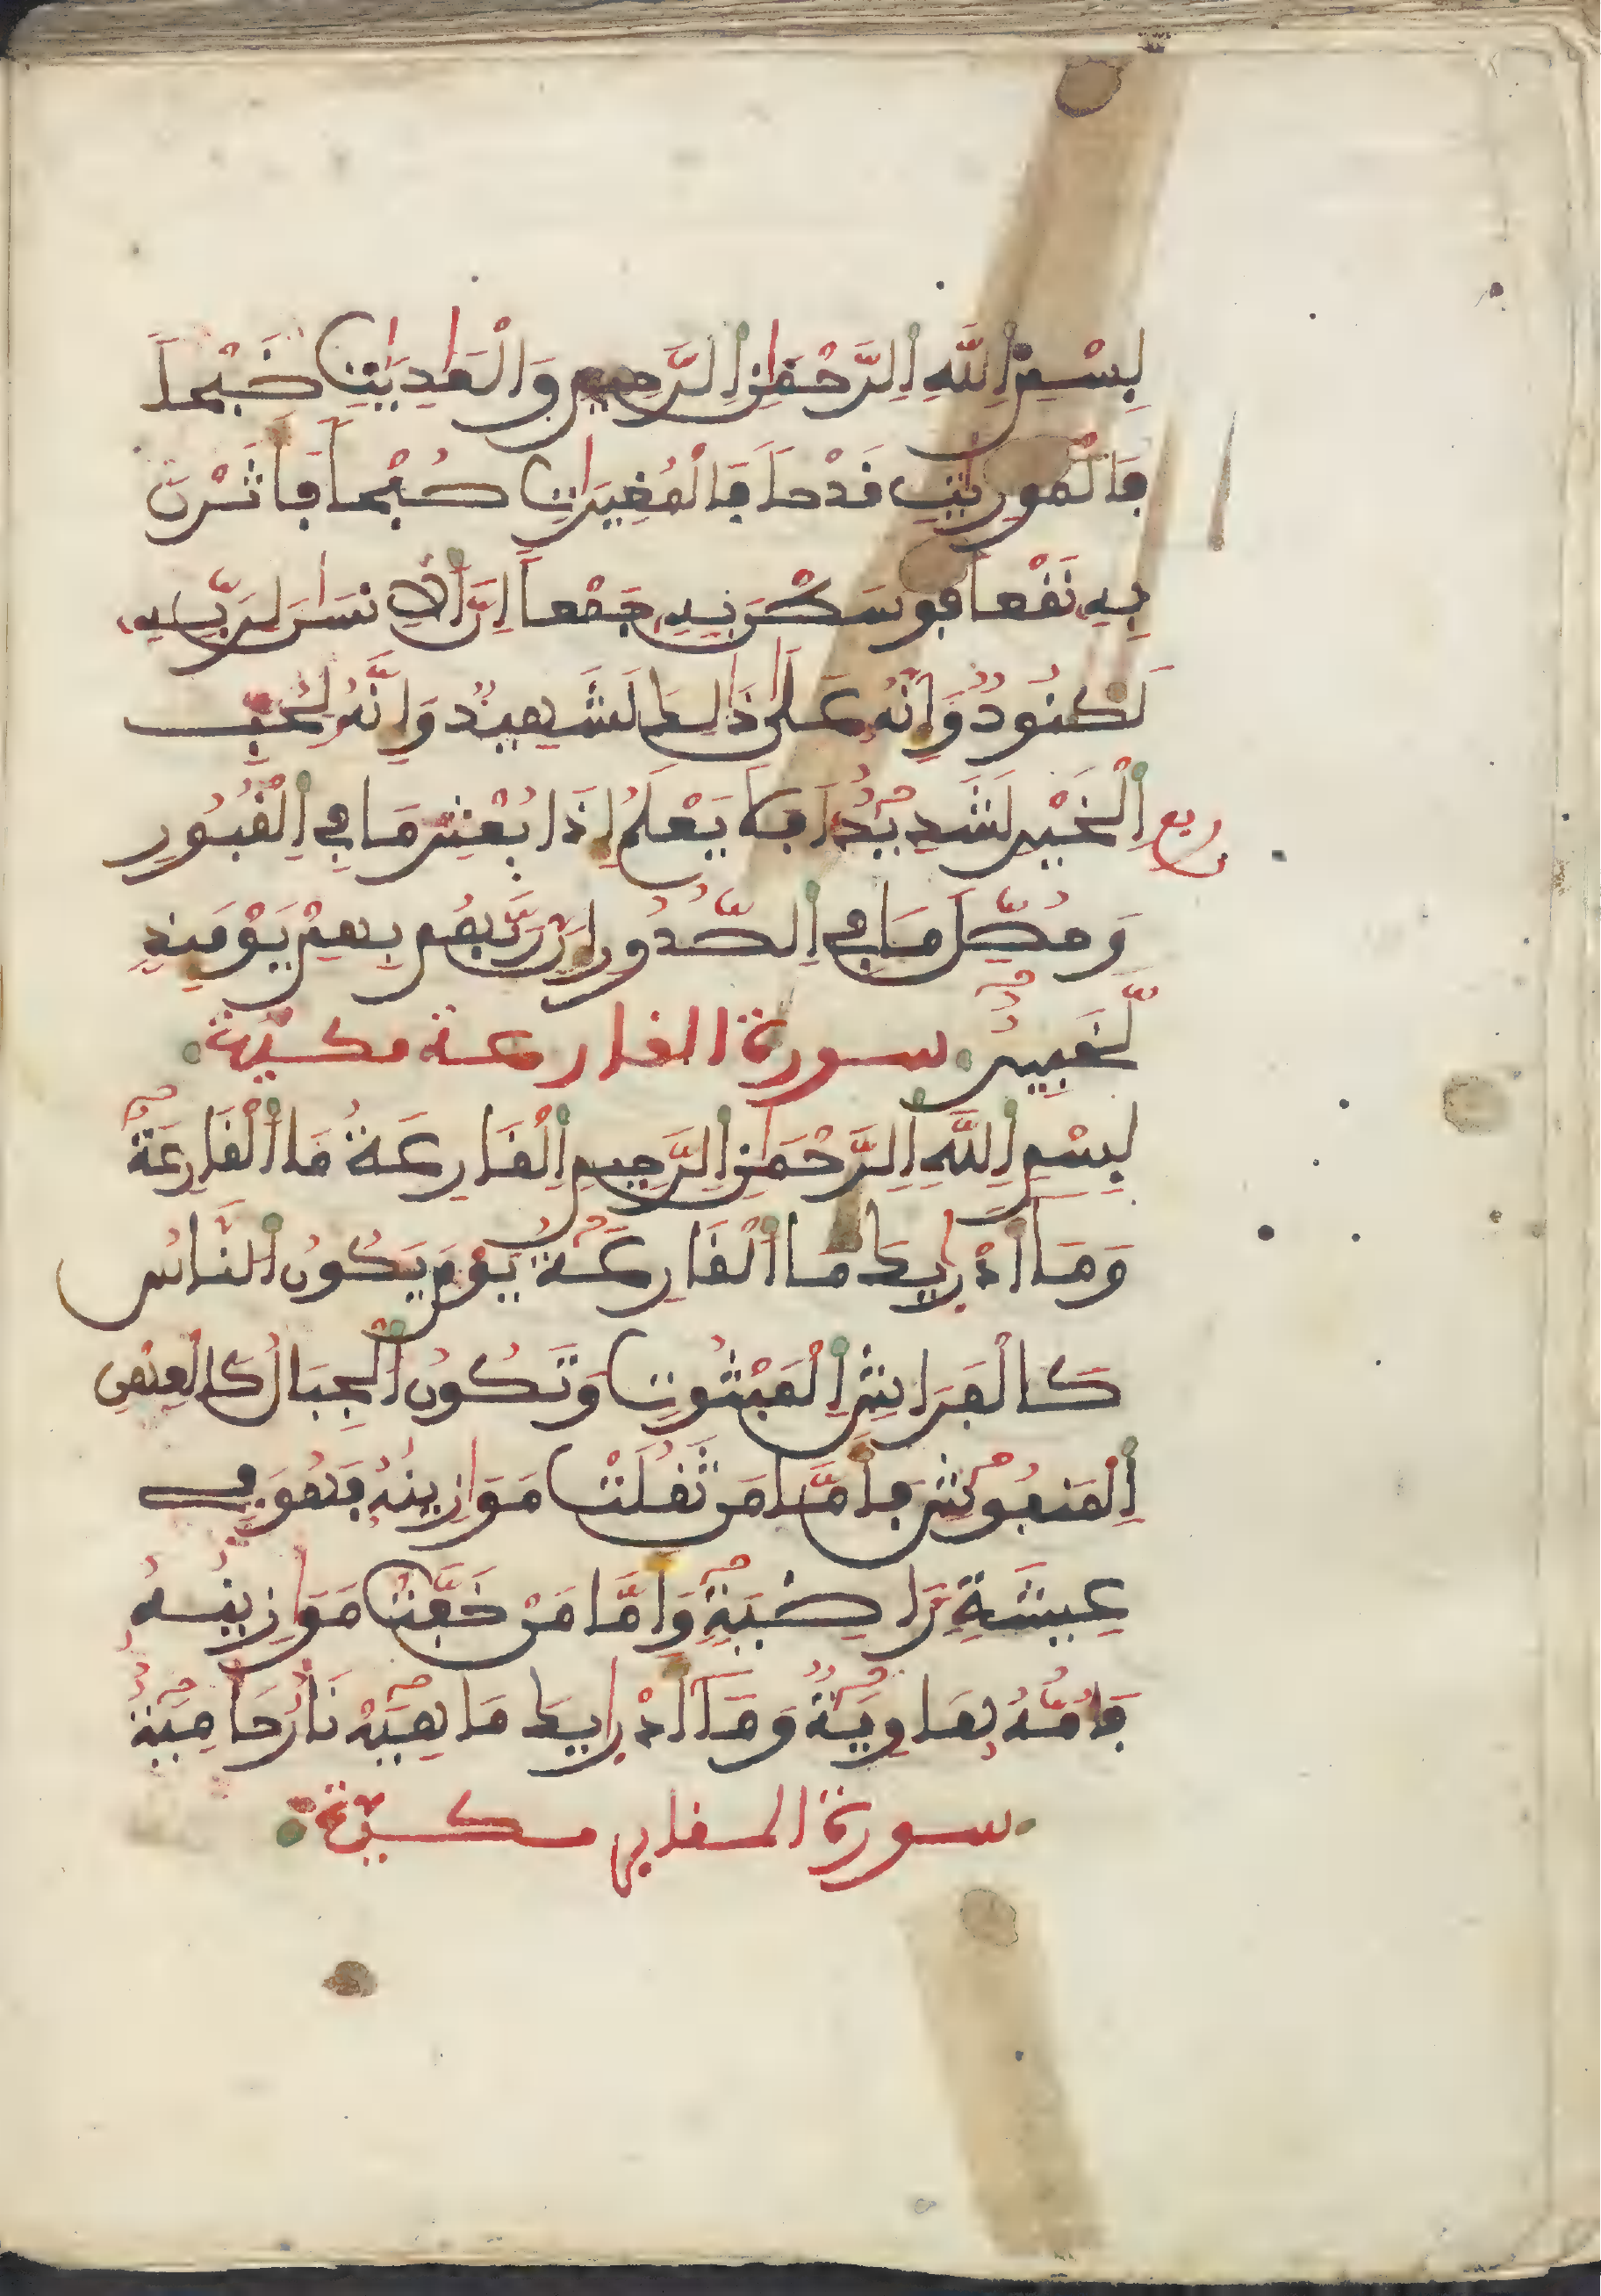 بِسْمِ اللَّهِ الرَّحْمَٰنِ الرَّحِيمِ وَالْعَٰدِيَٰتِ ضَبْحاً
فَالْمُورِيَٰتِ قَدْحاً فَالْمُغِيرَٰتِ صُبْحاً فَأَثَرْنَ
بِهِ نَقْعاً فَوَسَطْنَ بِهِ جَمْعاً إِنَّ الْإِنسَٰنَ لِرَبِّهِ
لَكَنُودٌ وَإِنَّهُ عَلَىٰ ذَٰلِكَ لَشَهِيدٌ وَإِنَّهُ لِحُبِّ
الْخَيْرِ لَشَدِيدٌ أَفَلَا يَعْلَمُ إِذَا بُعْثِرَ مَا فِي الْقُبُورِ
ربع
وَحُصِّلَ مَا فِي الصُّدُورِ إِنَّ رَبَّهُم بِهِمْ يَوْمَئِذٍ
لَّخَبِيرٌ سورة القارعة مكية
بِسْمِ اللَّهِ الرَّحْمَٰنِ الرَّحِيمِ الْقَارِعَةُ مَا الْقَارِعَةُ
وَمَا أَدْرَىٰكَ مَا الْقَارِعَةُ يَوْمَ يَكُونُ النَّاسُ
كَالْفَرَاشِ الْمَبْثُوثِ وَتَكُونُ الْجِبَالُ كَالْعِهْنِ
الْمَنفُوشِ فَأَمَّا مَن ثَقُلَتْ مَوَٰزِينُهُ فَهُوَ فِي
عِيشَةٍ رَّاضِيَةٍ وَأَمَّا مَنْ خَفَّتْ مَوَٰزِينُهُ
فَأُمُّهُ هَاوِيَةٌ وَمَا أَدْرَىٰكَ مَا هِيَهْ نَارٌ حَامِيَةٌ
سورة المقابر مكية